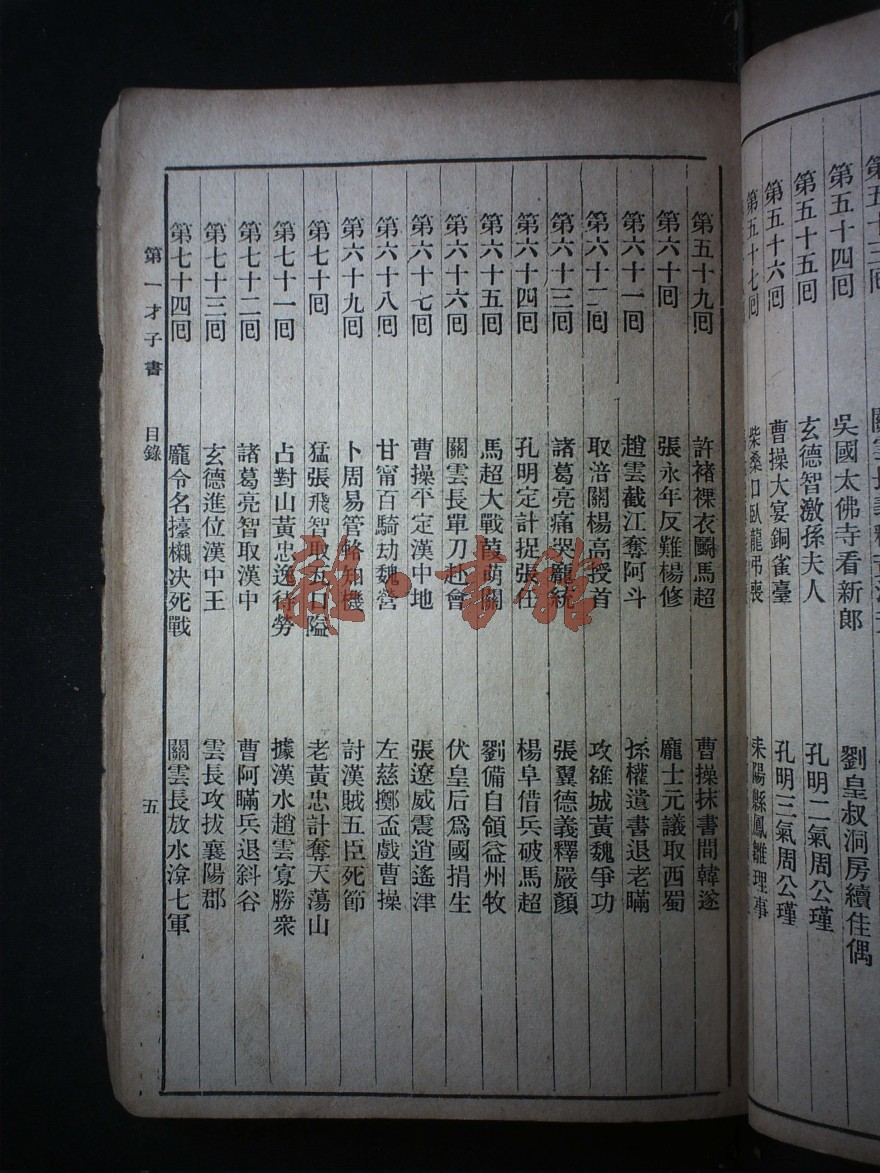 第五十四回 吳國太佛寺看新郎 劉皇叔洞房續佳偶
第五十五回 玄德智激孫夫人 孔明二氣周公瑾
第五十六回 曹操大宴銅雀臺 孔明三氣周公瑾
第五十七回 柴桑口臥龍弔喪 耒陽縣鳳雛理事
第五十九回 許褚裸衣鬭馬超 曹操抹書間韓遂
第六十回 張永年反難楊修 龐士元議取西蜀
第六十一回 趙雲截江奪阿斗 孫權遺書退老瞞
第六十二回 取涪關楊高授首 攻雒城黃魏爭功
第六十三回 諸葛亮痛哭龐統 張翼德義釋嚴顏
第六十四回 孔明定計捉張任 楊阜借兵破馬超
第六十五回 馬超大戰葭萌關 劉備自領益州牧
第六十六回 關雲長單刀赴會 伏皇后爲國捐生
第六十七回 曹操平定漢中地 張遼威震逍遙津
第六十八回 甘甯百騎劫魏營 左慈擲盃戲曹操
第六十九回 卜周易管輅知機 討漢賊五臣死節
第七十回 猛張飛智取瓦口隘 老黃忠計奪天蕩山
第七十一回 占對山黃忠逸待勞 據漢水趙雲寡勝衆
第七十二回 諸葛亮智取漢中 曹阿瞞兵退斜谷
第七十三回 玄德進位漢中王 雲長攻拔襄陽郡
第七十四回 龐令名擡櫬決死戰 關雲長放水渰七軍
第一才子書 目錄 五
書館